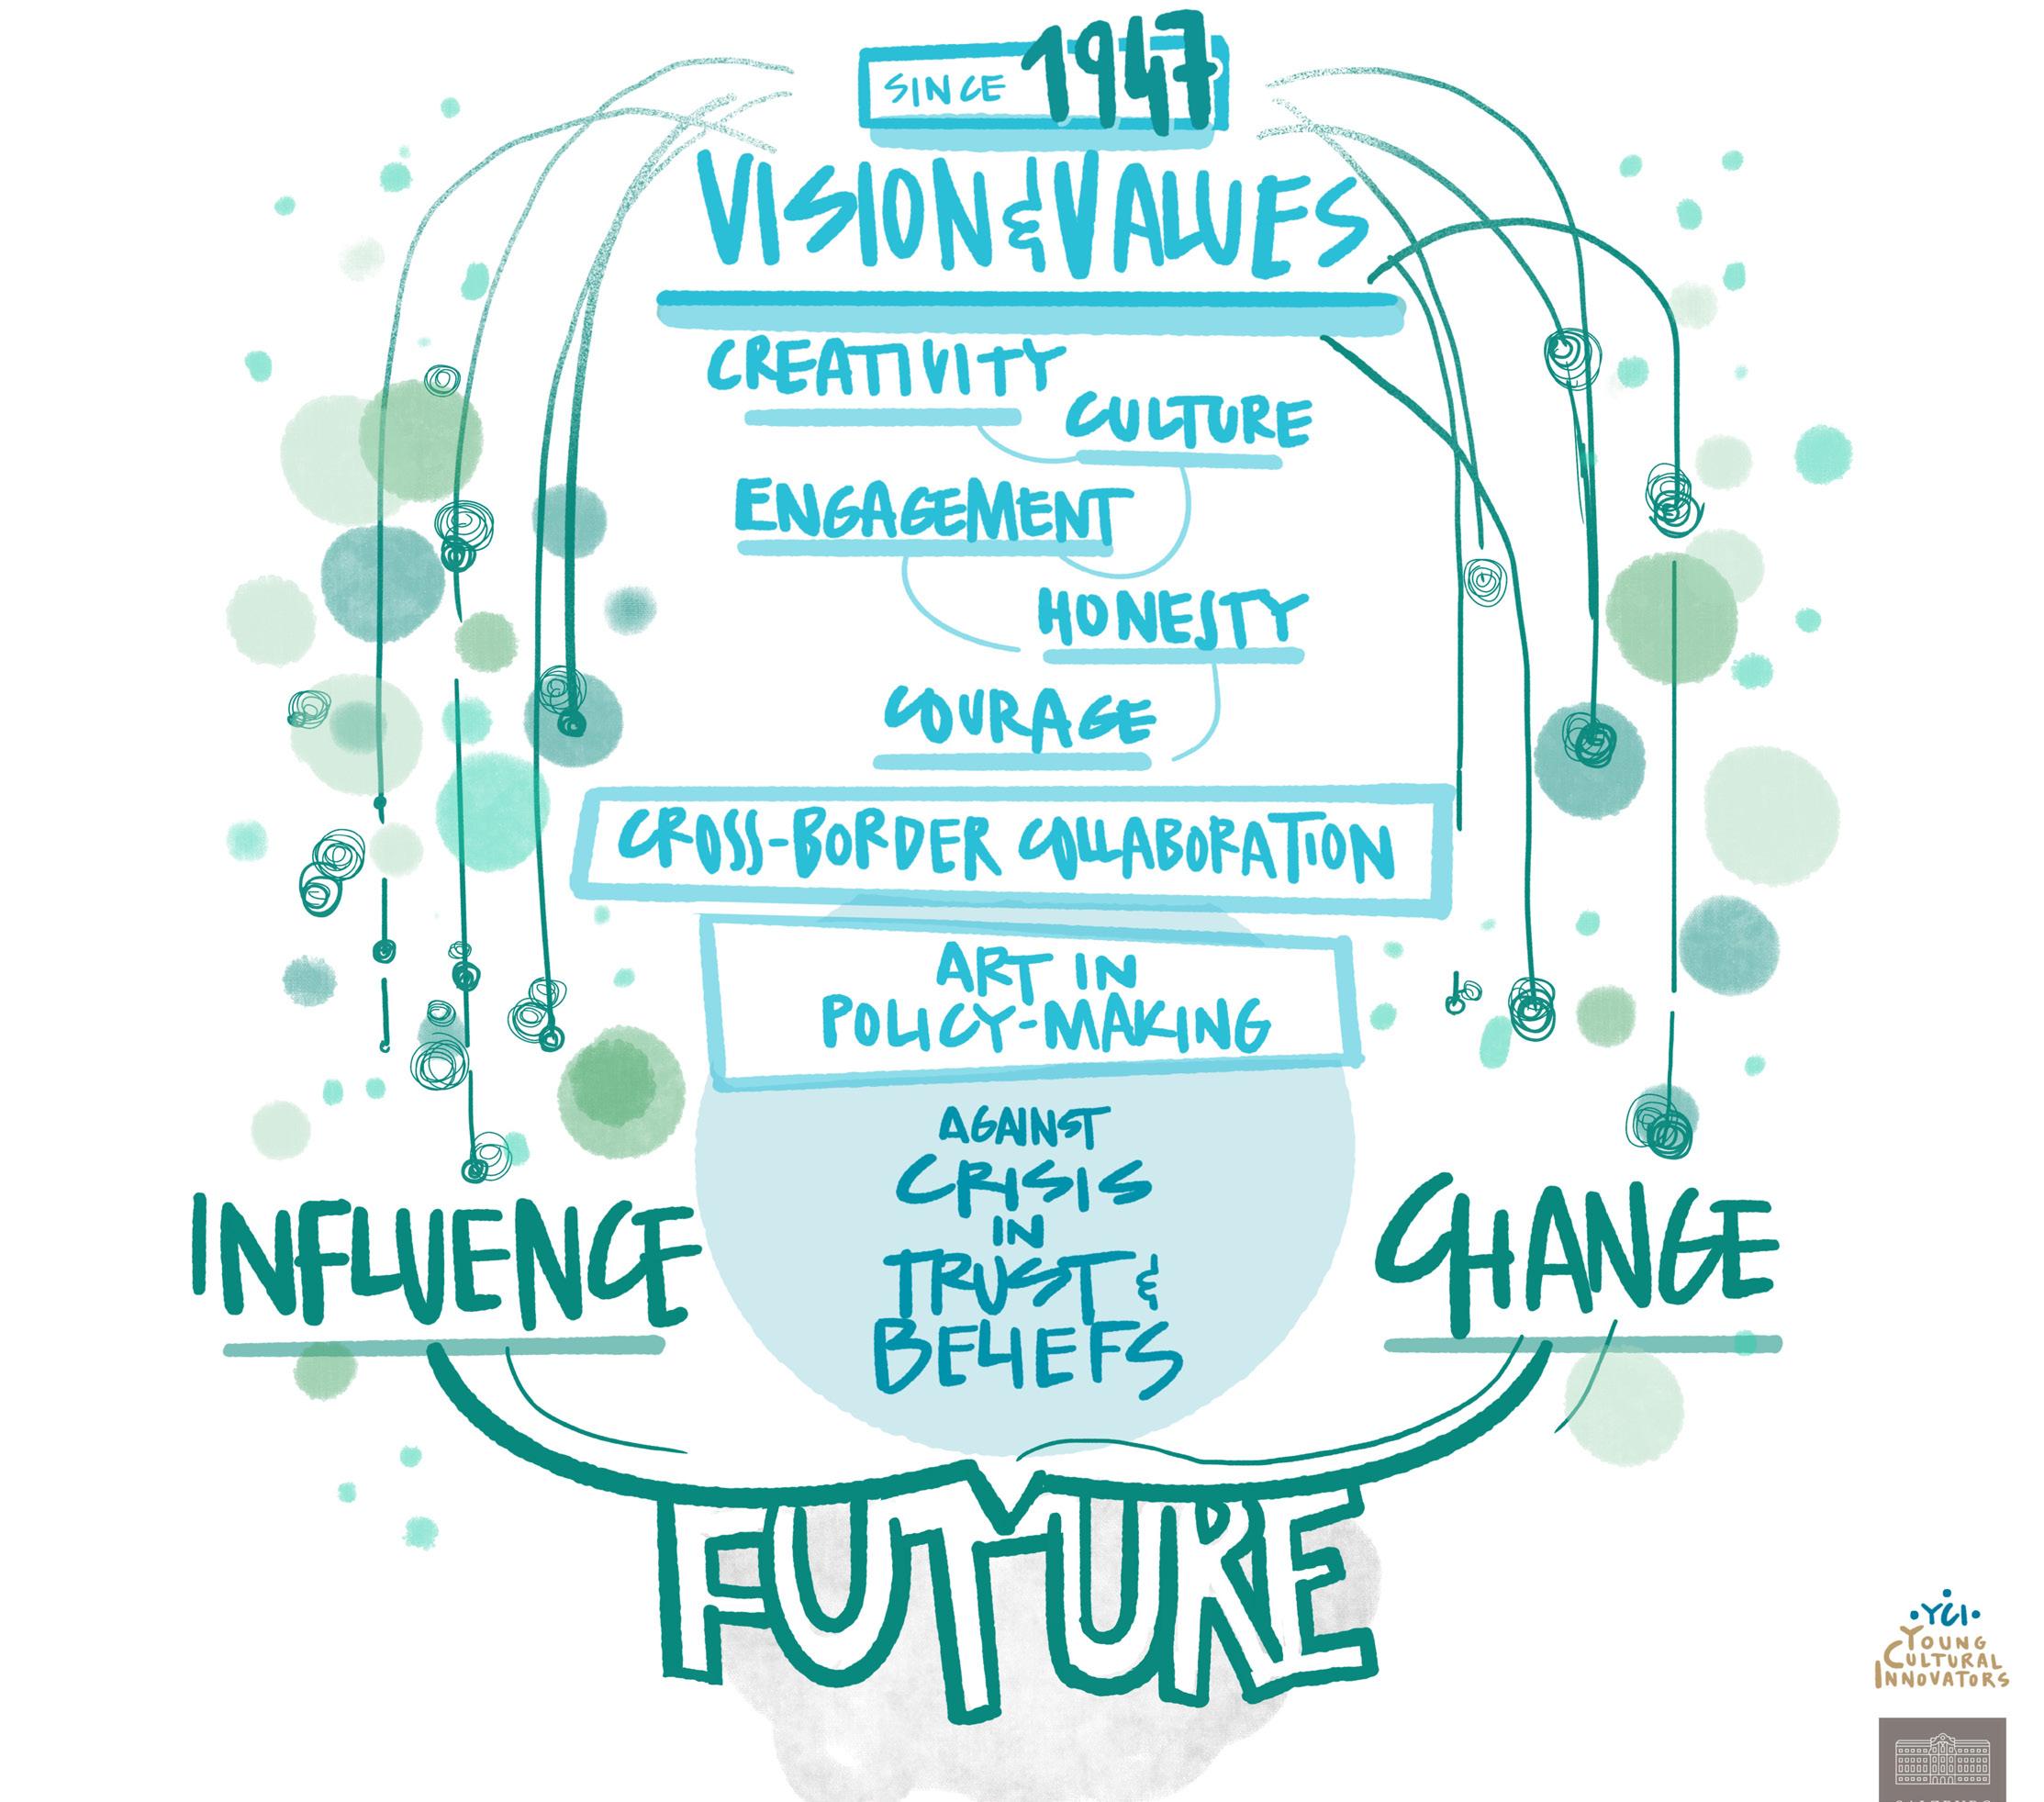 SINCE 1947
VISION & VALUES
CREATIVITY
CULTURE
ENGAGEMENT
HONESTY
COURAGE
CROSS-BORDER COLLABORATION
ART IN
POLICY-MAKING
AGAINST
CRISIS
IN
TRUST &
BELIEFS
INFLUENCE
CHANGE
FUTURE
YCI
YOUNG
CULTURAL
INNOVATORS